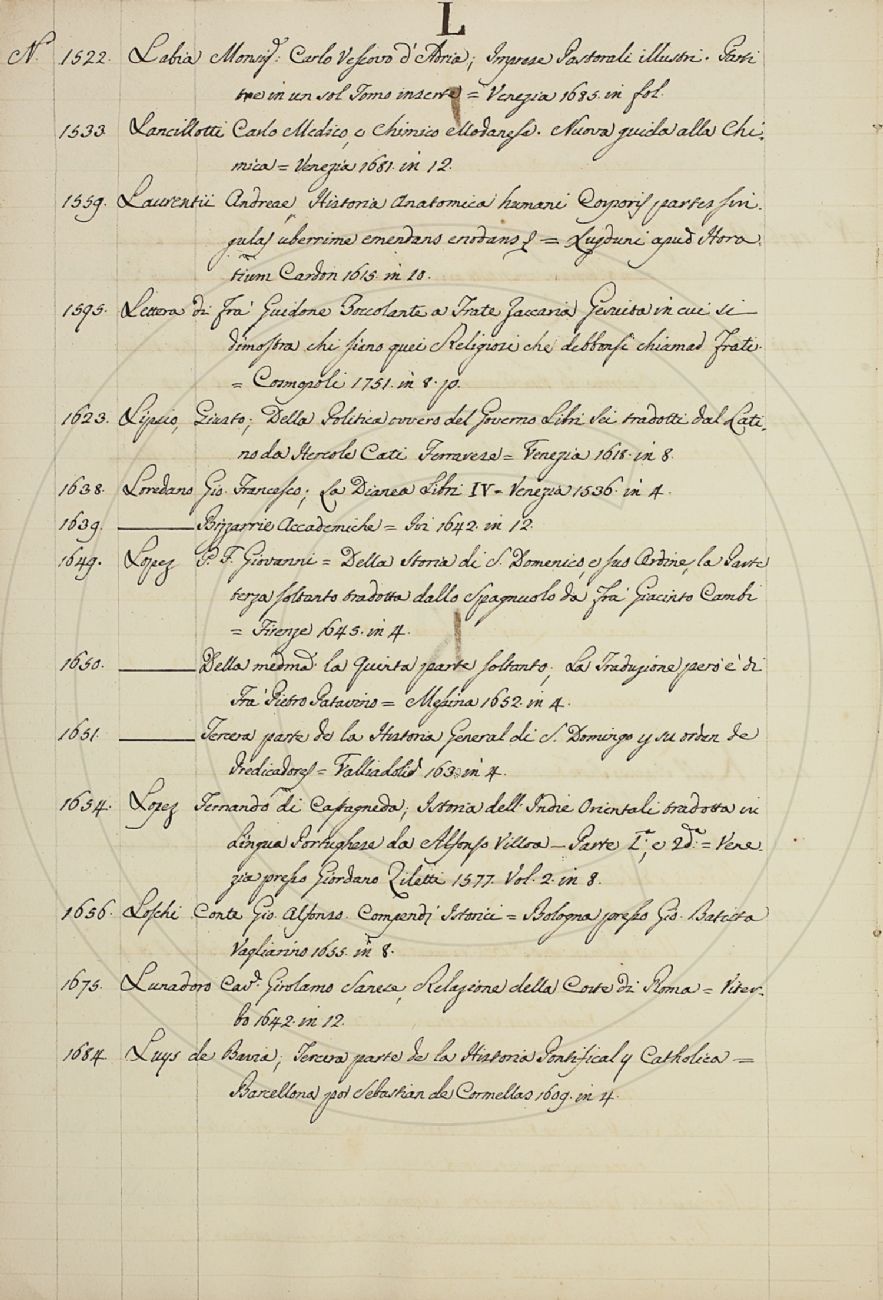 L
N. 1522. Labia Monsig.r Carlo Vescovo d'Adria; Imprese Pastorali illustri. Parti
tre in un sol Tomo inserte = Venezia 1685. in fol.
1533. Lancillotti Carlo Medico, e Chimico Modanese. Nuova guida alla Chi-
mica = Venezia 1681. in 12.
1559. Laurentii Andreae, Historia Anatomica humani Corporis partes sin-
gulas uberrime emendans enodans q = Lugduni apud Hora-
tium Cardon 1615. in 10.
1595. Lettera di Frà Guidone Zoccolante a Frate Zaccaria Gesuita in cui si
dimostra chi sieno quei Religiosi che debbonsi chiamad Frati.
= Cosmopoli 1751. in 8. p.
1623. Lipsio, Giusto; Della Politica ovvero del Governo Libri Sei tradotti dal Lati-
no da Hercole Cati Ferrarese = Venezia 1618. in 8.
1638. Loredano Gio. Francesco; La Dianea Libri IV = Venezia 1536. in 4.
1639. Bizzarrie Accademiche = Ivi 1642. in 12.
1649. Lopez P. F. Giovanni = Della Storia di S. Domenico, e suo Ordine, la Parte
terza soltanto tradotta dallo Spagnuolo da Frà Giacinto Cambi
= Firenze 1645. in 4.
1650. Della medma. la Quinta parte soltanto; La Traduzione però è di
Frà Pietro Patavino = Messina 1652. in 4.
1651. Tercera parte de la Historia General di S. Domingo y su orden de
Predicadores = Valliadolid 163 in 4.
1654. Lopez Fernando di Castagneda; Istoria dell'Indie Orientali tradotta in
Lingua Portughese da Alfonso Villoa — Parte I.a, e 2da. = Vene-
zia presso Giordano Ziletti 1577. Vol. 2. in 8.
1656. Loschi Conte Gio. Alfonso. Compendj Istorici = Bologna presso Gio. Batista
Vagliarino 1655. in 8.
1675. Lunadoro Cav.r Girolamo Sanese, Relazione della Corte di Roma = Viter-
bo 1642. in 12.
1684. Luys de Bavia; Tercera parte de la Historia Pontifical y Catholica =
Barcellona por Sebastian de Cormellas 1609. in 4.